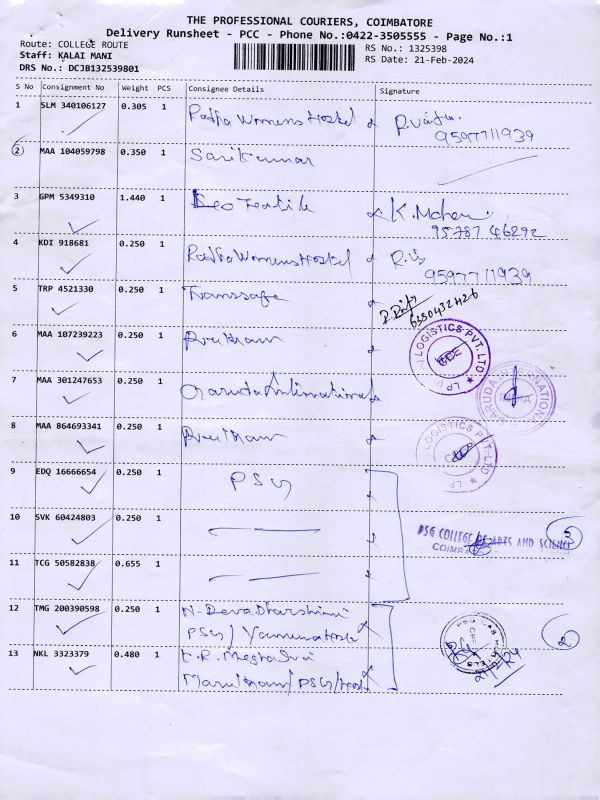 THE PROFESSIONAL COURIERS, COIMBATORE
Delivery Runsheet - PCC - Phone No.:0422-3505555 - Page No.:1
Route: COLLEGE ROUTE
RS No.: 1325398
Staff: KALAI MANI
RS Date: 21-Feb-2024
DRS No.: DCJB132539801
S No Consignment No Weight PCS Consignee Details Signature
1 SLM 340106127 0.305 1 Womens Hostel
9597711939
2 MAA 104059798 0.350 1 Sasikumar
3 GPM 5349310 1.440 1 Geo Textile K. Mohan
95787 46292
4 KDI 918681 0.250 1 Womens Hostel
9597711939
5 TRP 4521330 0.250 1 Transsafe
6350432426
6 MAA 107239223 0.250 1
LOGISTICS PVT. LTD
7 MAA 301247653 0.250 1 Garuda International
GARUDA INTERNATIONAL
8 MAA 864693341 0.250 1
LOGISTICS PVT. LTD
9 EDQ 16666654 0.250 1 PSG
10 SVK 60424803 0.250 1
PSG COLLEGE OF ARTS AND SCIENCE
COIMBATORE
3
11 TCG 50582838 0.655 1
12 TMG 200390598 0.250 1 N. Devadharshini
PSG / Yamuna Hostel
2
13 NKL 3323379 0.480 1
PSG / Hostel
21/2/24